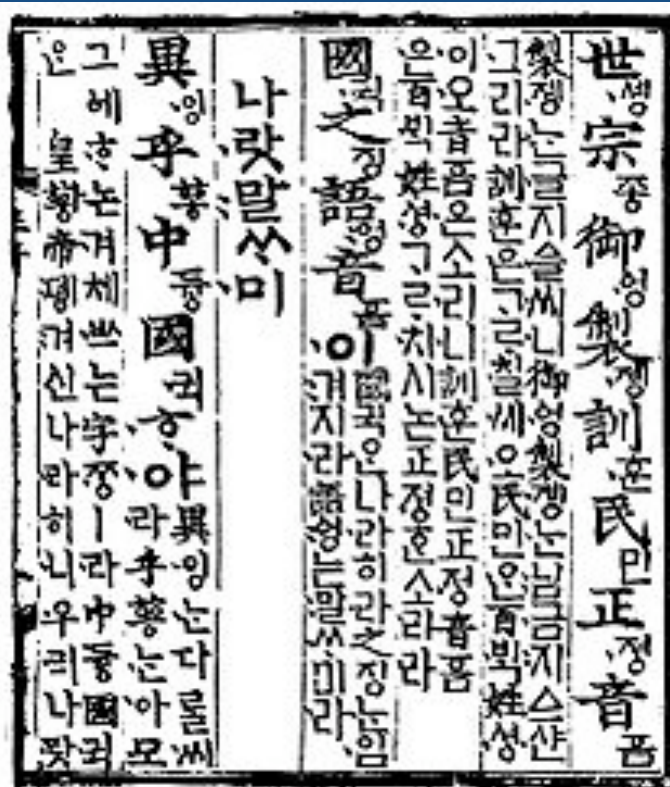 世솅宗종御ᅌᅥᆼ製졩訓훈民민正졍音ᅙᅳᆷ
製졩는글지ᅀᅳᆯ씨니御ᅌᅥᆼ製졩는님금지ᅀᅳ샨
그리라訓훈은ᄀᆞᄅᆞ칠씨오民민ᄋᆞᆫ百ᄇᆡᆨ姓셩
이오音ᅙᅳᆷ은소리니訓훈民민正졍音ᅙᅳᆷ
은百ᄇᆡᆨ姓셩ᄀᆞᄅᆞ치시논正졍ᄒᆞᆫ소리라
國귁之징語ᅌᅥᆼ音ᅙᅳᆷ이
國귁ᄋᆞᆫ나라히라之징는입
겨지라語ᅌᅥᆼ는말ᄊᆞ미라
나랏말ᄊᆞ미
異잉乎ᅘᅩᆼ中듕國귁ᄒᆞ야
異잉는다ᄅᆞᆯ씨
라乎ᅘᅩᆼ는아모
그ᅌᅦᄒᆞ논겨체ᄡᅳ는字ᄍᆞᆼㅣ라中듕國귁
ᄋᆞᆫ皇ᅘᅪᆼ帝뎽겨신나라히니우리나랏